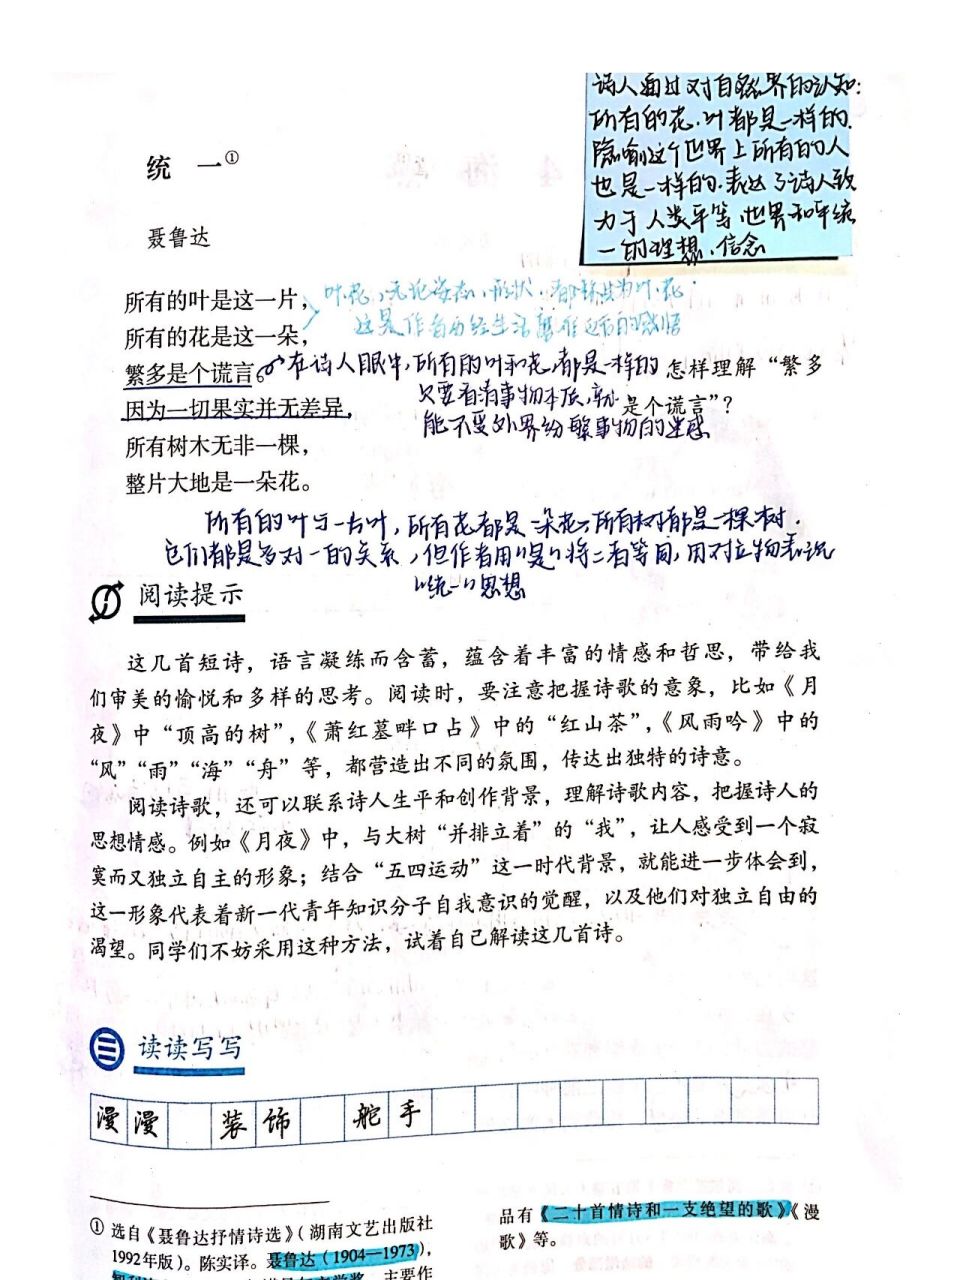 诗人通过对自然界的认知:
所有的花、叶都是一样的.
隐喻这个世界上所有的人
也是一样的.表达了诗人致
力于人类平等、世界和平统
一的理想、信念
统一①
聂鲁达
所有的叶是这一片，
所有的花是这一朵，
繁多是个谎言，
因为一切果实并无差异，
所有树木无非一棵，
整片大地是一朵花。
叶、花，无论姿态、形状，都称其为叶、花.
这是作者历经生活后的感悟
在诗人眼中,所有的叶和花,都是一样的
只要看清事物本质,就
能不受外界纷繁事物的迷惑
怎样理解“繁多
是个谎言”？
所有的叶与一片叶，所有花都是一朵花，所有树都是一棵树.
它们都是多对一的关系，但作者用“是”将二者等同，用对立物表说
“统一”思想
阅读提示
这几首短诗，语言凝练而含蓄，蕴含着丰富的情感和哲思，带给我
们审美的愉悦和多样的思考。阅读时，要注意把握诗歌的意象，比如《月
夜》中“顶高的树”，《萧红墓畔口占》中的“红山茶”，《风雨吟》中的
“风”“雨”“海”“舟”等，都营造出不同的氛围，传达出独特的诗意。
阅读诗歌，还可以联系诗人生平和创作背景，理解诗歌内容，把握诗人的
思想情感。例如《月夜》中，与大树“并排立着”的“我”，让人感受到一个寂
寞而又独立自主的形象；结合“五四运动”这一时代背景，就能进一步体会到，
这一形象代表着新一代青年知识分子自我意识的觉醒，以及他们对独立自由的
渴望。同学们不妨采用这种方法，试着自己解读这几首诗。
读读写写
漫漫 装饰 舵手
① 选自《聂鲁达抒情诗选》（湖南文艺出版社
1992年版）。陈实译。聂鲁达（1904—1973），
主要作
品有《二十首情诗和一支绝望的歌》《漫
歌》等。